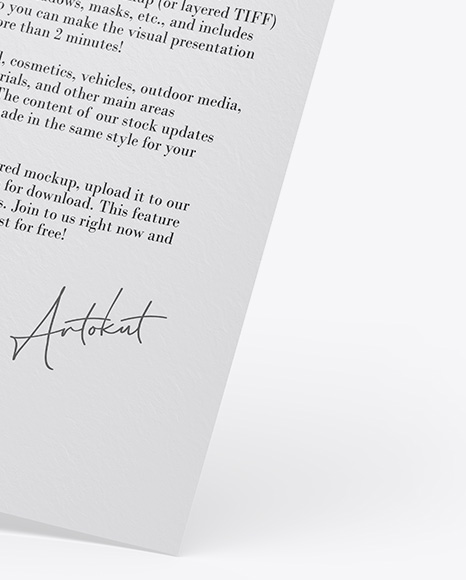 (or layered TIFF)
masks, etc., and includes
you can make the visual presentation
than 2 minutes!
cosmetics, vehicles, outdoor media,
and other main areas
The content of our stock updates
in the same style for your
mockup, upload it to our
for download. This feature
Join to us right now and
for free!
Antokut